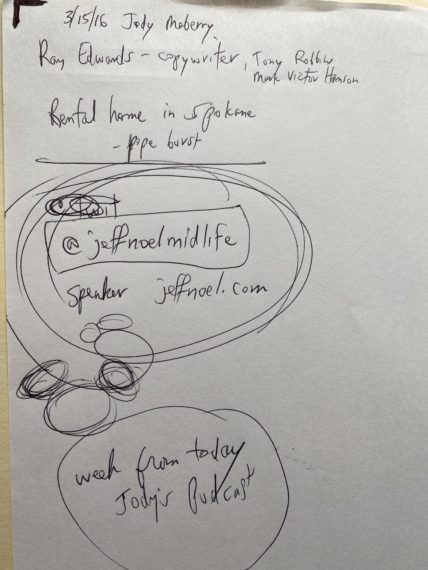 3/15/16 Jody Maberry
Ray Edwards - copywriter, Tony Robbins
Mark Victor Hanson
Rental home in Spokane
- pipe burst
@jeffnoelmidlife
Speaker jeffnoel.com
week from today
Jody's Podcast